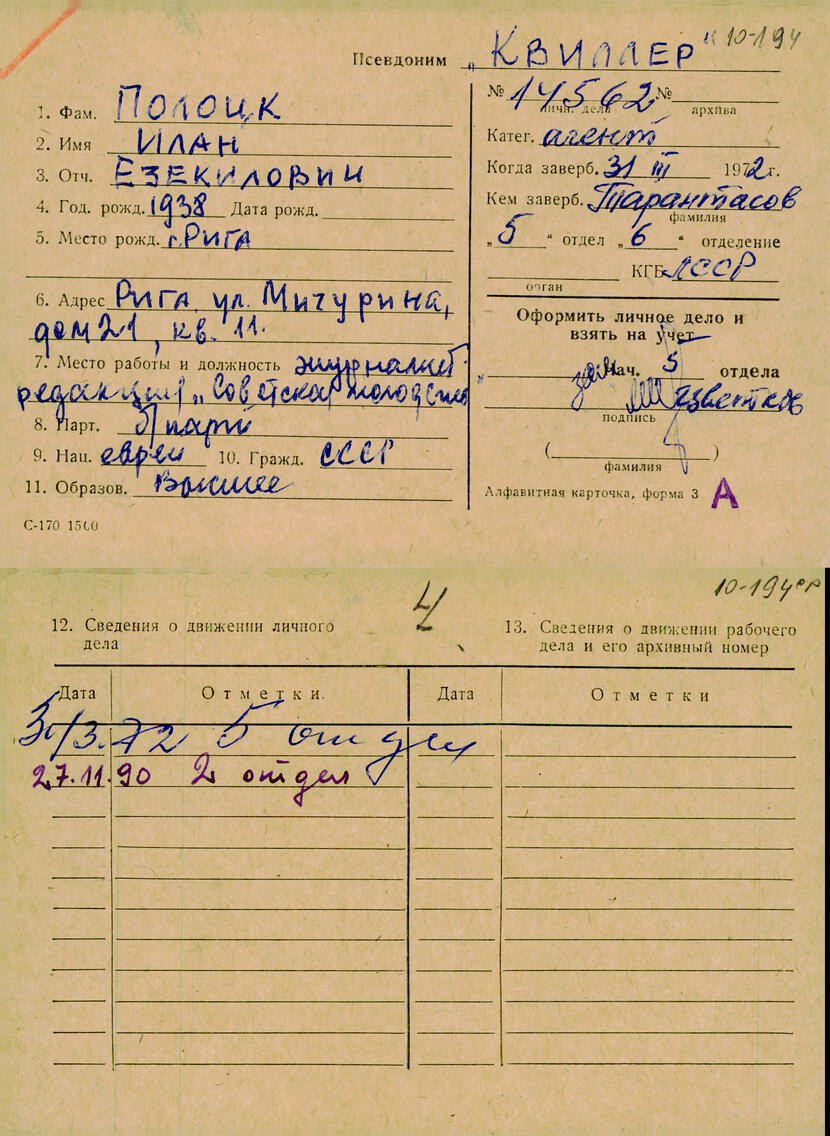 Псевдоним „КВИЛЛЕР“ 10-194
1. Фам. Полоцк
2. Имя Илан
3. Отч. Езекилович
4. Год. рожд. 1938 Дата рожд.
5. Место рожд. г. Рига
6. Адрес Рига, ул. Мичурина,
дом 21, кв. 11.
7. Место работы и должность журналист
редакции „Советская молодежь
8. Парт. б/парт
9. Нац. еврей 10. Гражд. СССР
11. Образов. Высшее
С-170 1500
№ 14562 №
личн. дела архива
Катег. агент
Когда заверб. 31 III 1972 г.
Кем заверб. Тарантасов
фамилия
„5“ отдел „6“ отделение
КГБ ЛССР
орган
Оформить личное дело и
взять на учет
зам Нач. 5 отдела
подпись
( )
фамилия
Алфавитная карточка, форма 3 А
10-194
4
12. Сведения о движении личного
дела
13. Сведения о движении рабочего
дела и его архивный номер
Дата Отметки. Дата Отметки
31/3.72 5 отдел
27.11.90 2 отдел